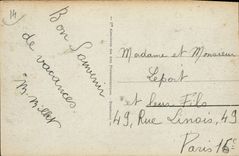 14
Bon Souvenir
de vacances.
Madame et Monsieur
Leport
et leur Fils
49, Rue Linois, 49
Paris 15e